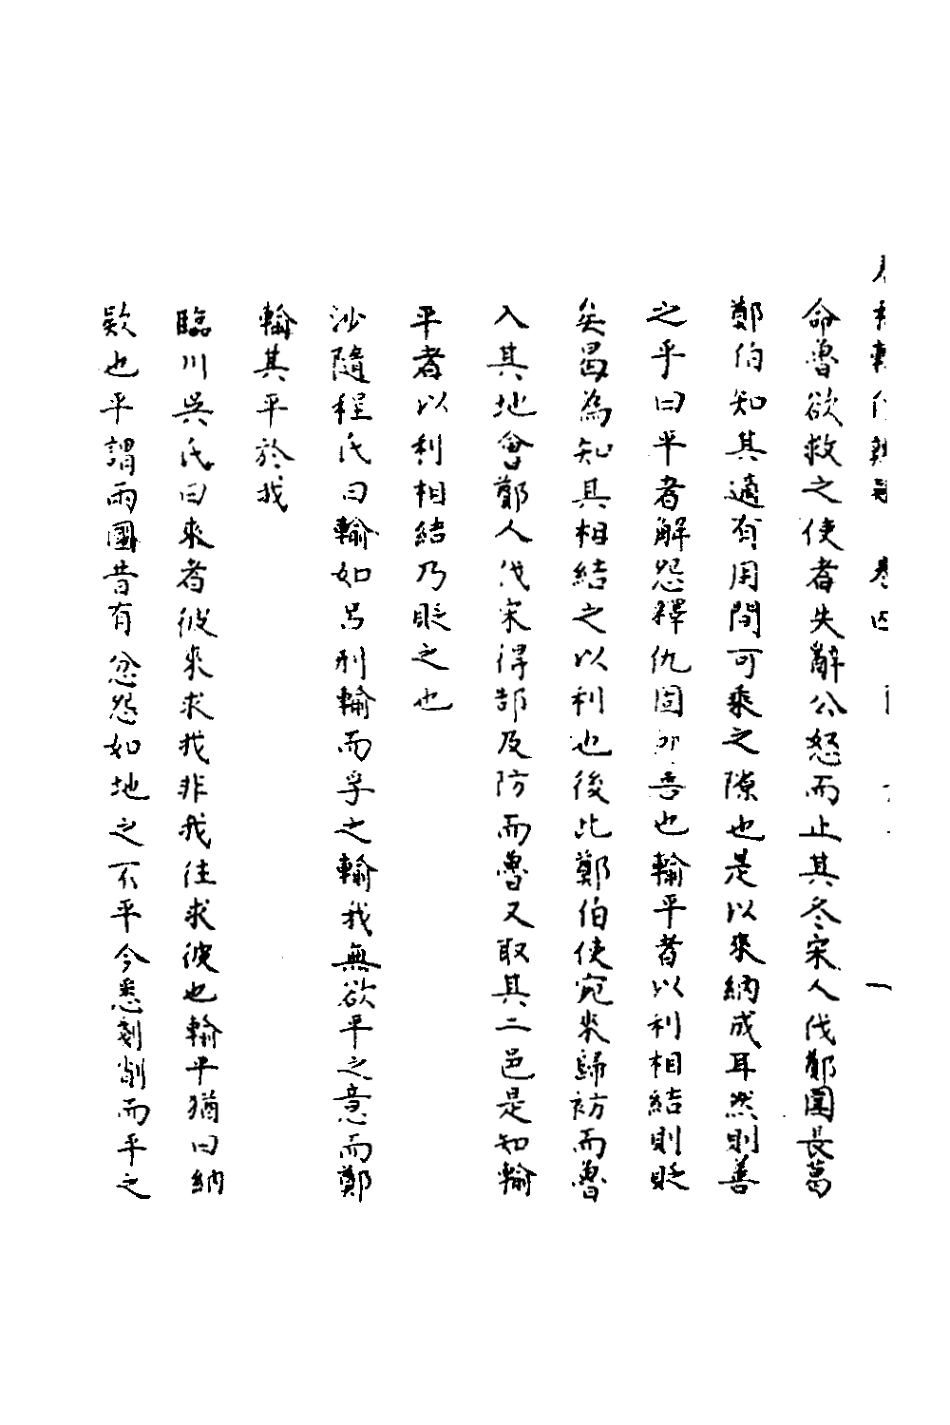 命魯欲救之使者失辭公怒而止其冬宋人伐鄭圍長葛
鄭伯知其適有用間可乘之隙也是以來納成耳然則善
之乎曰平者解怨釋仇固所善也輸平者以利相結則貶
矣曷為知其相結之以利也後此鄭伯使宛來歸祊而魯
入其地會鄭人伐宋得郜及防而魯又取其二邑是知輸
平者以利相結乃貶之也
沙隨程氏曰輸如呂刑輸而孚之輸我無欲平之意而鄭
輸其平於我
臨川吳氏曰來者彼來求我非我往求彼也輸平猶曰納
欵也平謂兩國昔有忿怨如地之不平今悉剗削而平之